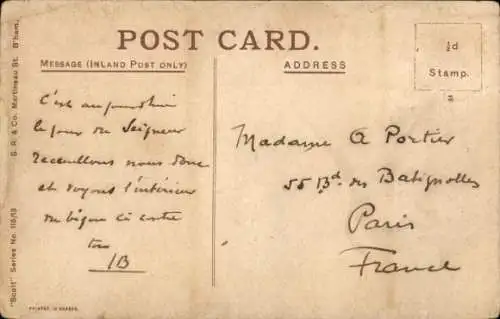 POST CARD.
MESSAGE (INLAND POST ONLY)
ADDRESS
½d
Stamp.
"Scott" Series No. 110/13
S. R. & Co. Martineau St. B'ham.
C'est aujourd'hui
le jour du Seigneur
recueillons nous donc
et voyons l'intérieur
du bijou ci contre
tou
JB
Madame A Portier
55 Bd. des Batignolles
Paris
France
PRINTED IN SAXONY.